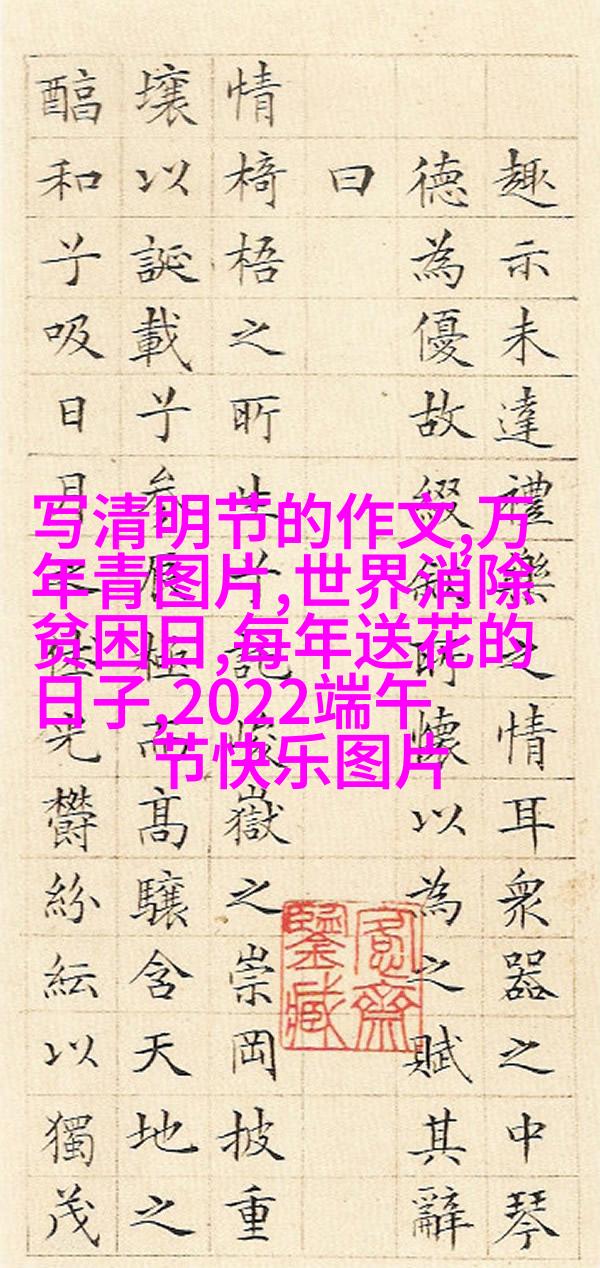 趣示未達禮樂之情耳衆器之中琴
德為優故綴敘所懷以為之賦其辭
曰
情椅梧之所生兮託峻嶽之崇岡披重
壤以誕載兮參辰極而高驤含天地之
醕和兮吸日月之休光鬱紛紜以獨茂
愙齋
鑒藏
写清明节的作文,万
年青图片,世界消除
贫困日,每年送花的
日子,2022端午
节快乐图片